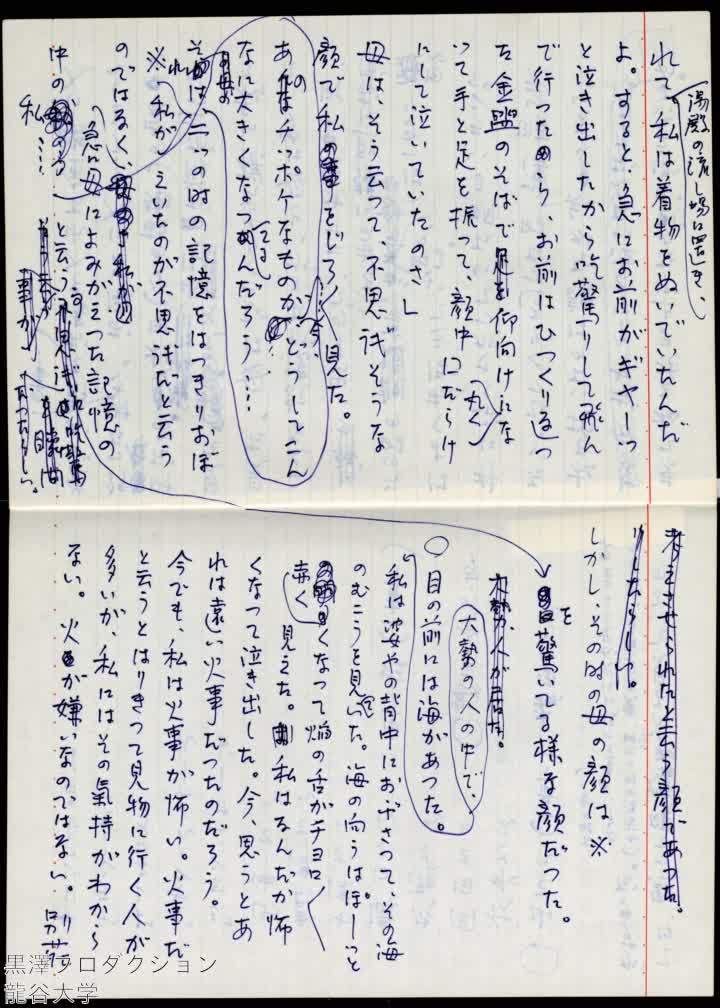 湯殿の流し場に置き、
れて、私は着物をぬいでいたんだ
よ。すると、急にお前がギャーッ
と泣き出したから吃驚りして飛ん
で行ったら、お前はひっくり返っ
た金盥のそばで足を仰向けにな
って手と足を振って、顔中口だらけ
にして泣いていたのさ」
母は、そう云って、不思議そうな
顔で私をじろ〱見た。
あのチッポケなものが、今、どうしてこん
なに大きくなってるんだろう……
それは、二つの時の記憶をはっきりおぼ
※私が
えいたのが不思議だと云う
のではなく、
急に母によみがえった記憶の
中の
私……
と云う
考えさせられたと云う顔であった。
しかし、その時の母の顔は※
を驚いてる様な顔だった。
大勢、人が居た。
大勢の人の中で、
○目の前には海があった。
私は婆やの背中におぶさって、その海
のむこうを見ていた。海の向うはぼーっと
赤くなって焔の舌がチョロ〱
見えた。私はなんだか怖
くなって泣き出した。今、思うとあ
れは遠い火事だったのだろう。
今でも、私は火事が怖い。火事だ
と云うとはりきって見物に行く人が
多いが、私にはその氣持がわから
ない。火が嫌いなのではない。
黒澤プロダクション
龍谷大学